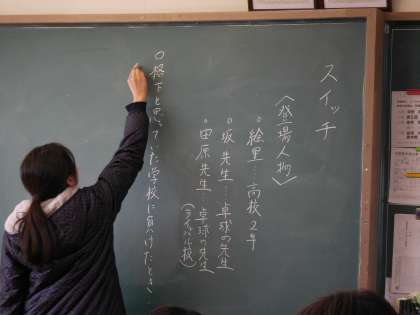 スイッチ
〈登場人物〉
○絵里…高校2年
○坂先生…卓球の先生
○田原先生…卓球の先生
(ライバル校)
○格下と思っていた学校に負けたとき、